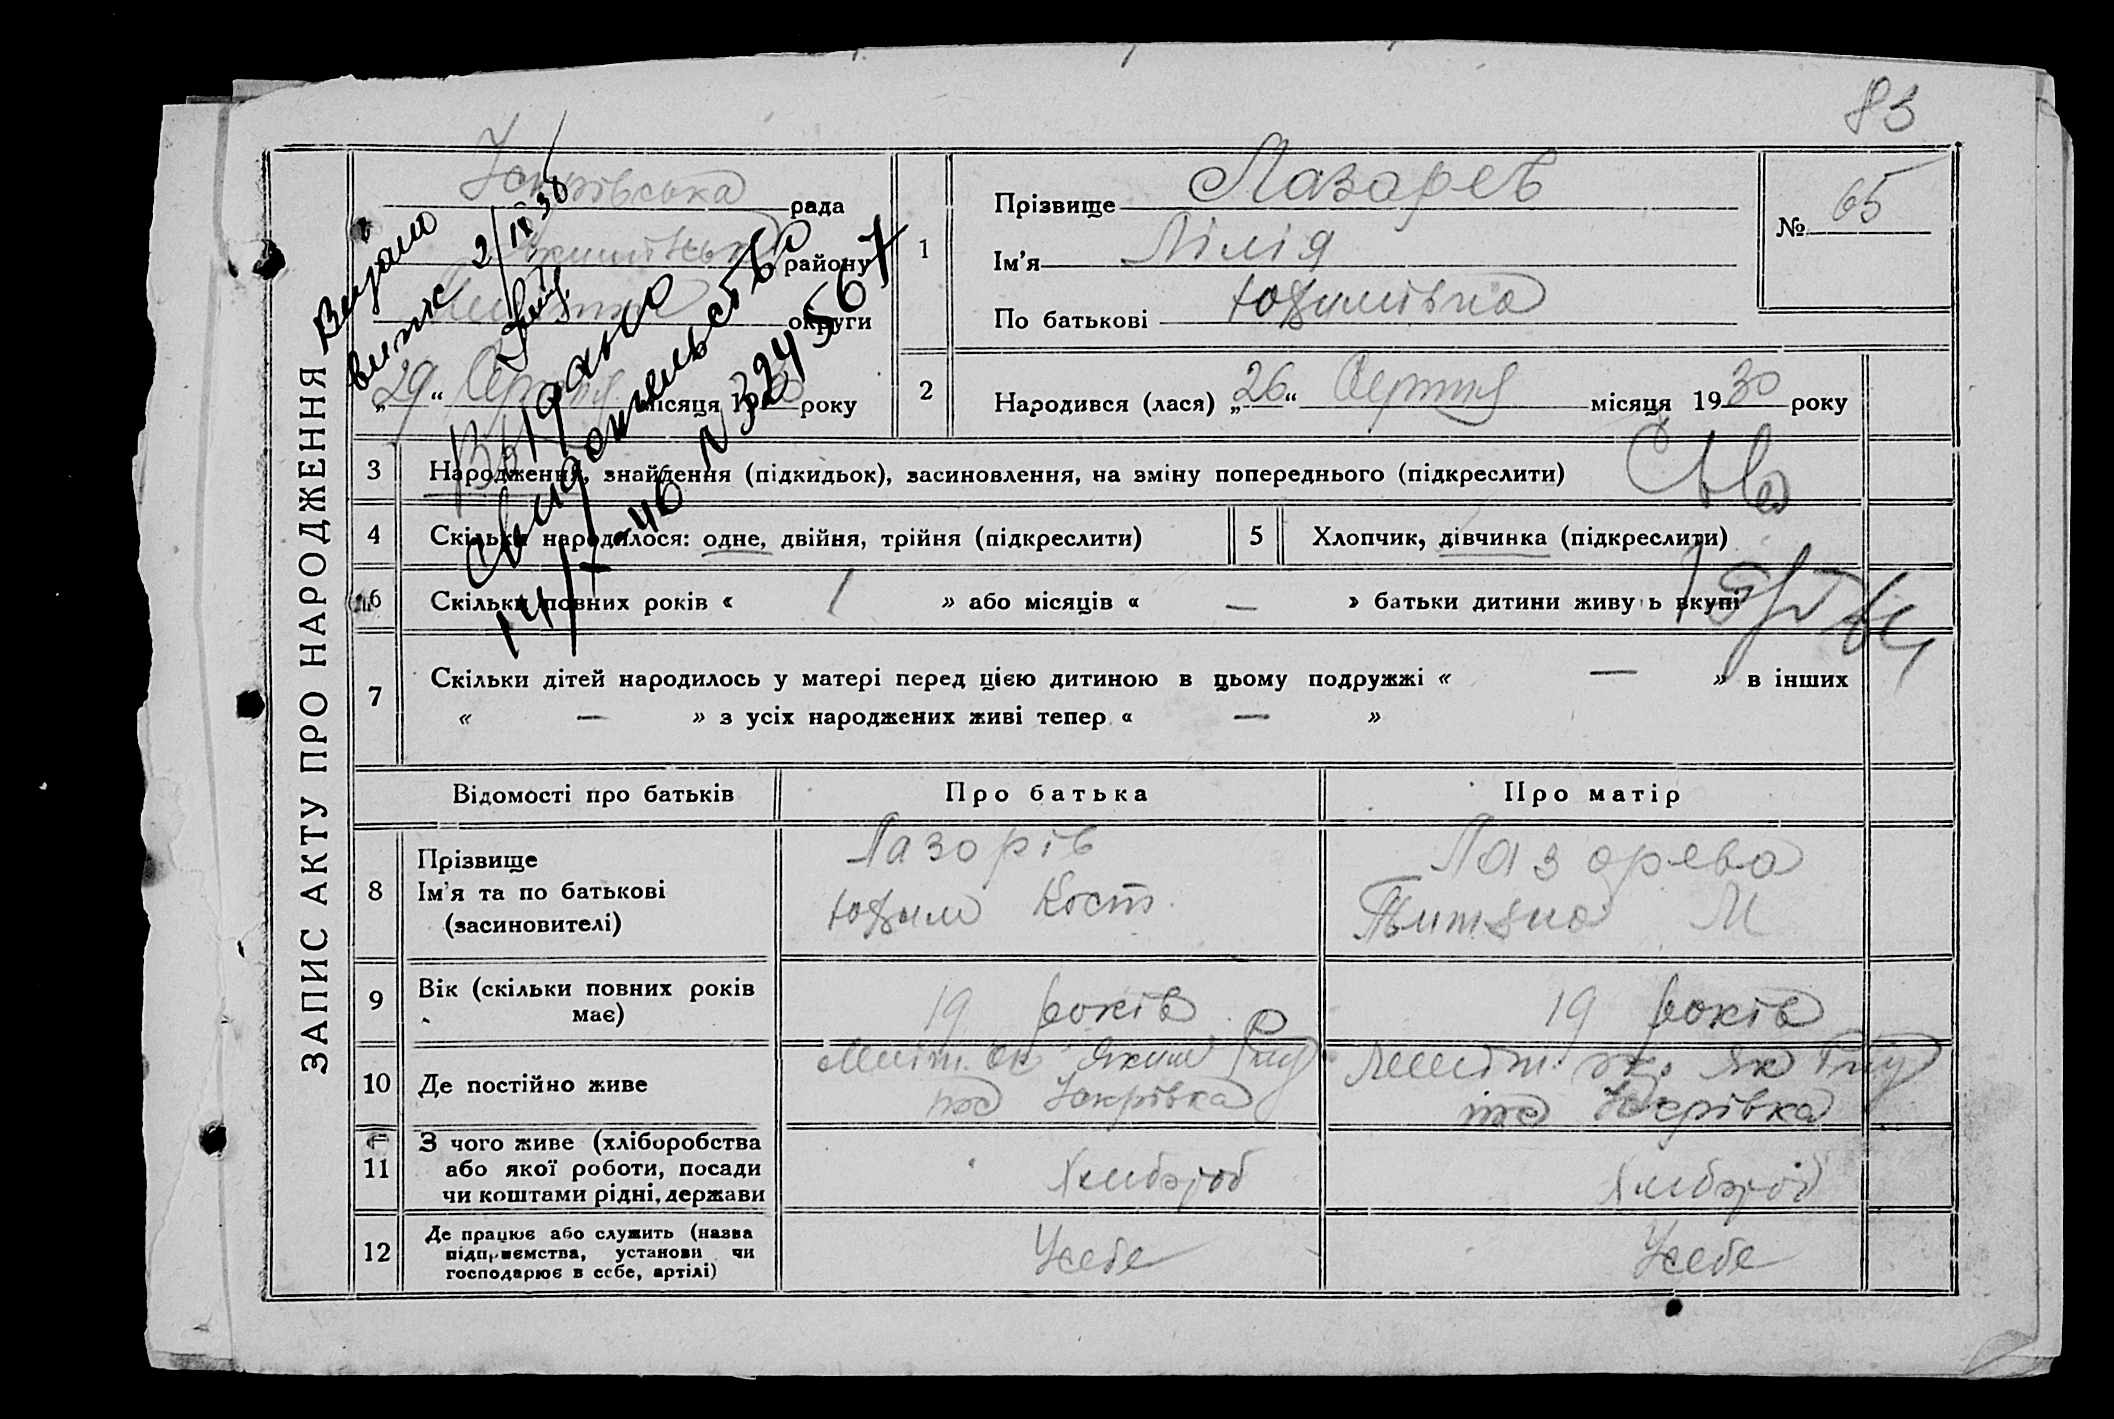 83
ЗАПИС АКТУ ПРО НАРОДЖЕННЯ
рада
району
округи
„29“ Серпня місяця 1930 року
Видано
випис 2/IV 38
Выдано
свидетельство
14/ -46 N 324567
1
Прізвище Лазарев
Ім'я Лілія
По батькові Юхимівна
№ 65
2
Народився (лася) „26“ Серпня місяця 1930 року
3 Народження, знайдення (підкидьок), засиновлення, на зміну попереднього (підкреслити)
4 Скільки народилося: одне, двійня, трійня (підкреслити) 5 Хлопчик, дівчинка (підкреслити)
6 Скільки повних років « 1 » або місяців « — » батьки дитини живуть вкупі
7 Скільки дітей народилось у матері перед цією дитиною в цьому подружжі « — » в інших
« — » з усіх народжених живі тепер « — »
Відомості про батьків Про батька Про матір
8 Прізвище
Ім'я та по батькові
(засиновителі)
Лазорів
Юхим Кост.
Лазорева
Титяна М
9 Вік (скільки повних років
має)
19 років
19 років
10 Де постійно живе
11 З чого живе (хліборобства
або якої роботи, посади
чи коштами рідні, держави
Хлибороб
Хлибороб
12 Де працює або служить (назва
підприємства, установи чи
господарює в себе, артілі)
Усебе
Усебе